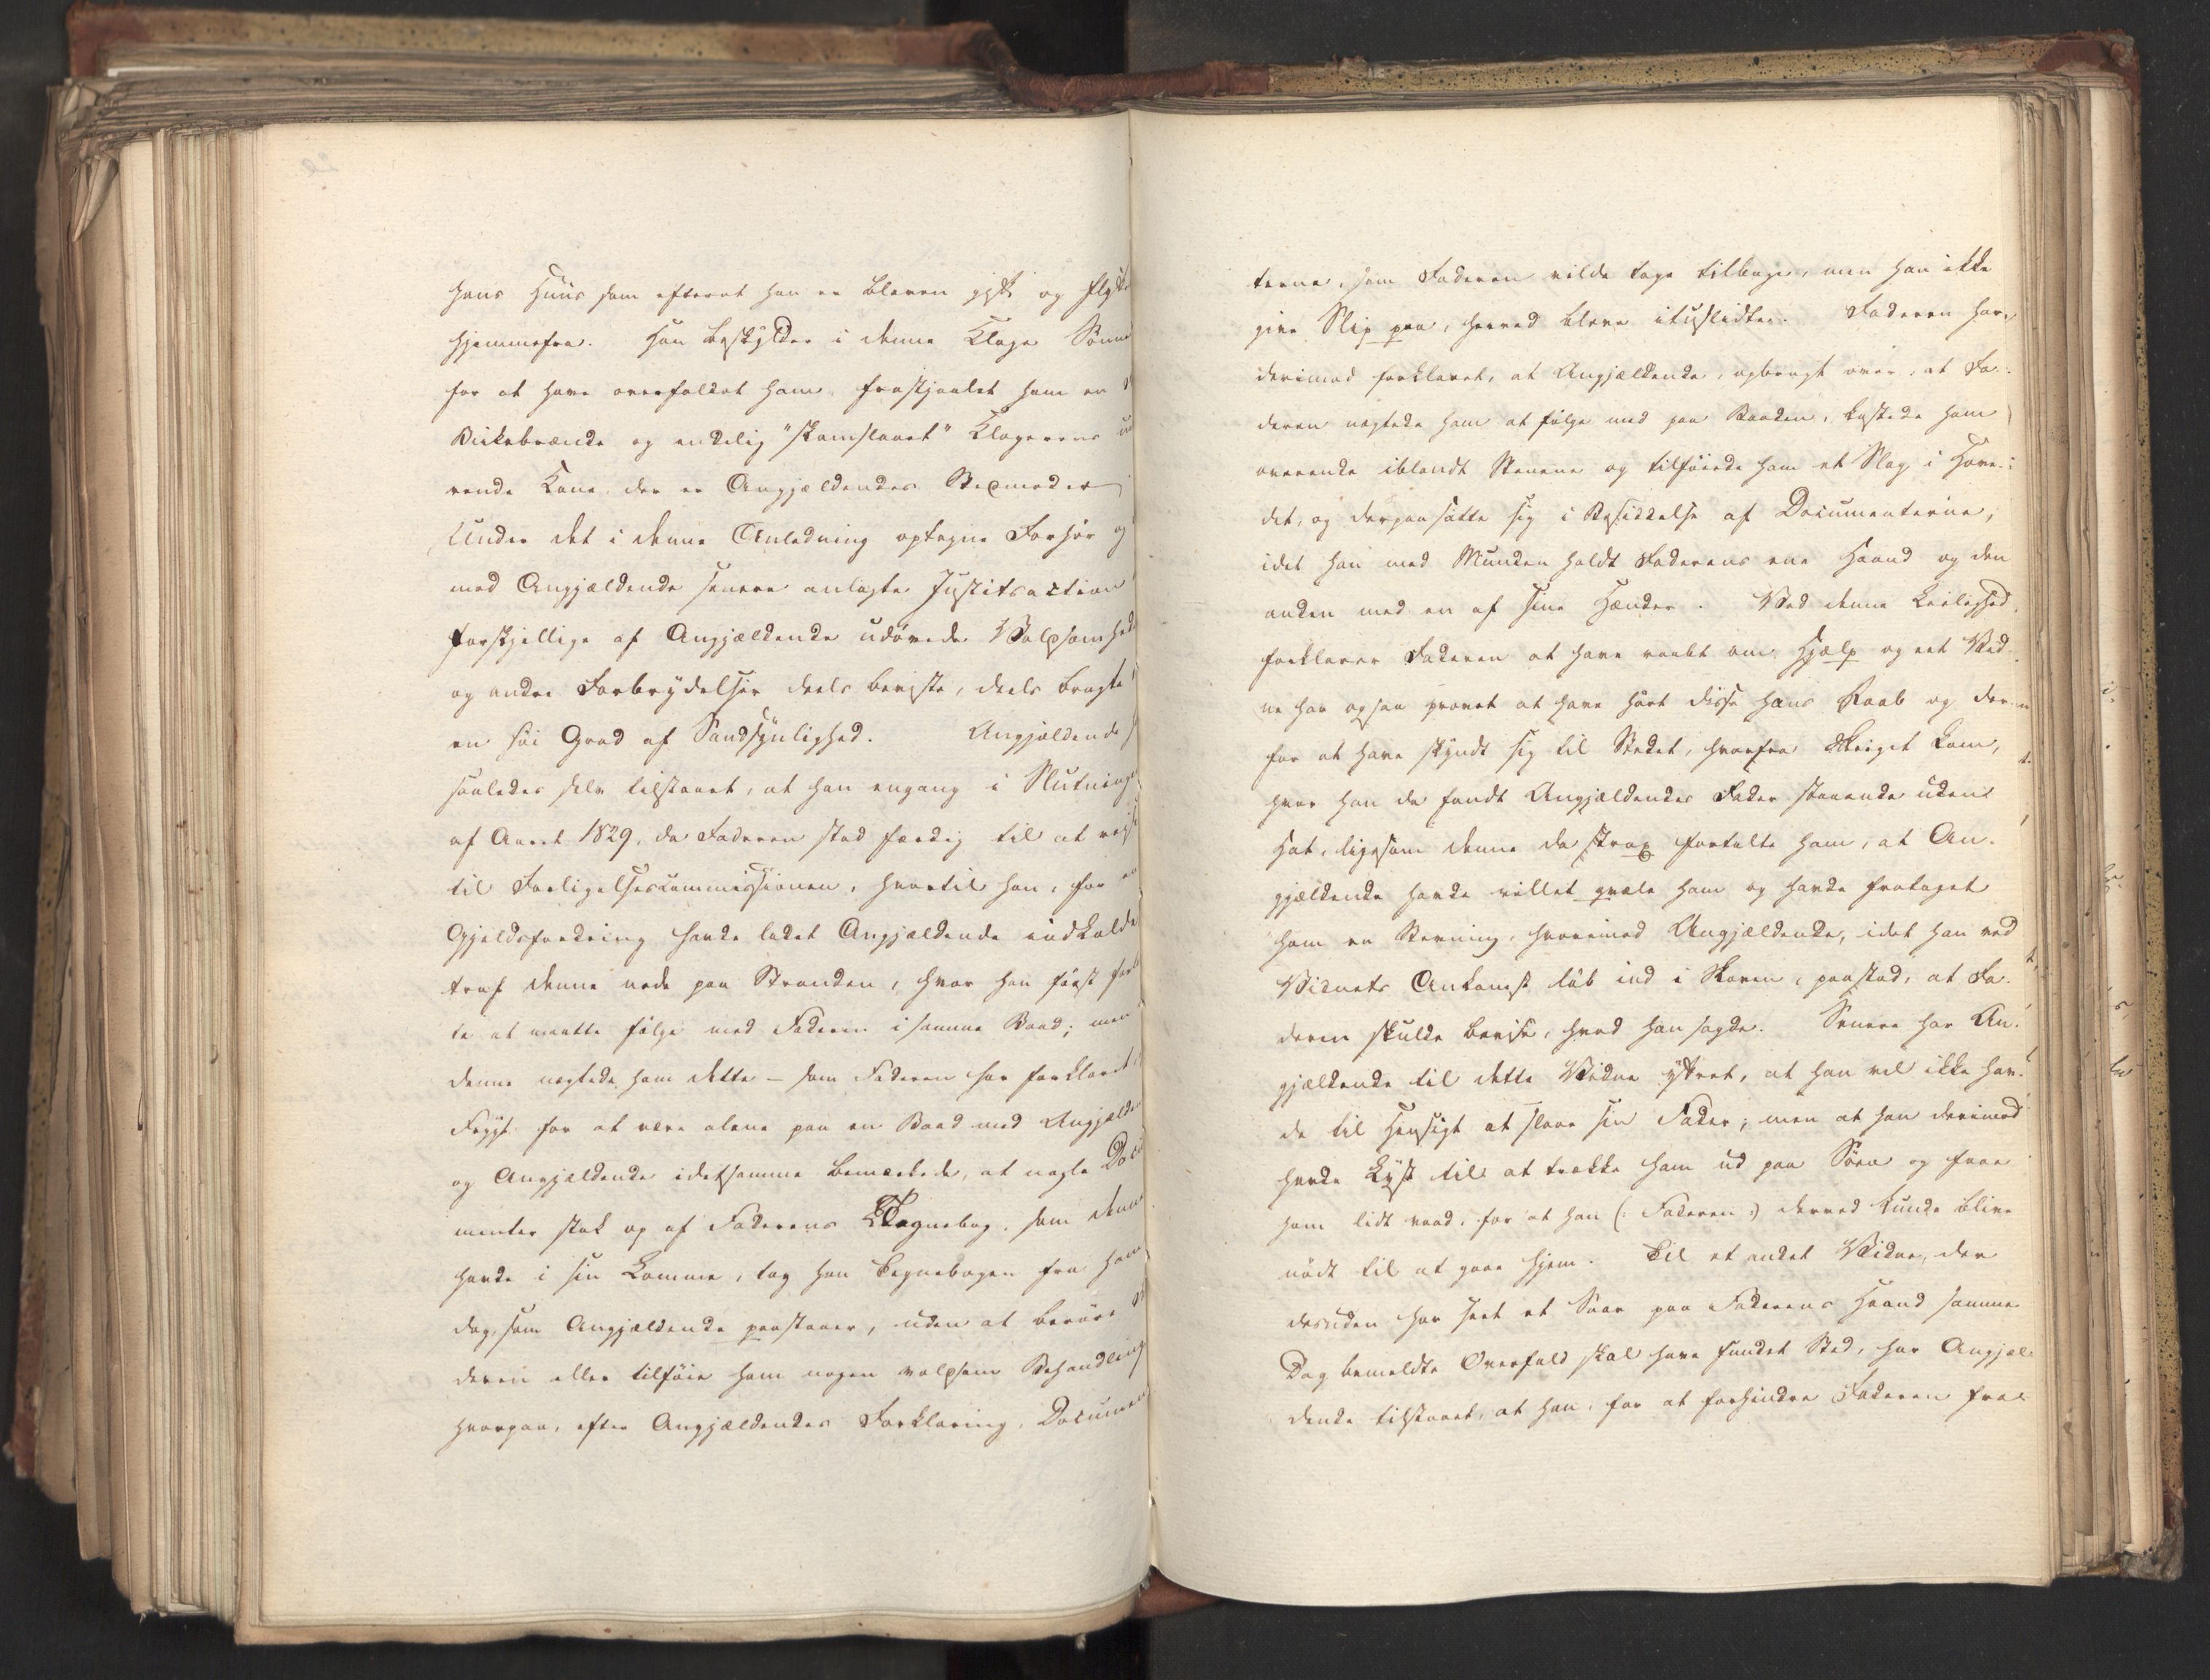 hans Huus som efterat han er bleven gift og flyt
hjemmefra. Han beskylder i denne Klage Sønn
for at have overfaldet ham, frastjaalet ham en
Birkebrænde og endelig "skamslaaet" Klagerens
rende Kone, der er Angjældendes Stedmoder
Under det i denne Anledning optagne Forhør og
mod Angjældende senere anlagte Justitsaction
forskjellige af Angjældende udøvede Voldsomhed
og andre Forbrydelser deels beviste, deels bragte
en høi Grad af Sandsynlighed. Angjældende
saaledes selv tilstaaet, at han engang i Slutning
af Aaret 1829, da Faderen stod færdig til at rejs
til Forligelsescommissionen, hvortil han, for en
Gjeldsfordring havde ladet Angjældende indkalde
traf denne nede paa Stranden, hvor han først for
te at maatte følge med Faderen i samme Baad; men
denne nægtede ham dette – som Faderen har forklaret
Frygt for at være alene paa en Baad med Angjælde
og Angjældende idetsamme bemærkede, at nogle Docu
menter stak op af Faderens Tegnebog, som denne
havde i sin Lomme, tog han Tegnebogen fra ham
dog, som Angjældende paastaaer, uden at berøre
deren eller tilføie ham nogen voldsom Behandling
hvorpaa, efter Angjældendes Forklaring, Documen
terne, som Faderen vilde tage tilbage, men han ikke
give Slip paa, herved bleve ituslidte. Faderen har
derimod forklaret, at Angjældende, opbragt over, at Fa-
deren nægtede ham at følge med paa Baaden, kastede ham
overende iblandt Stenene og tilføiede ham et Slag i Hove-
det, og derpaa satte sig i Besiddelse af Documenterne,
idet han med Munden holdt Faderens ene Haand og den
anden med en af sine Hænder. Ved denne Leilighed
forklarer Faderen at have raabt om Hjælp og eet Vid-
ne har ogsaa provet at have hørt disse hans Raab og der-
for at have skyndt sig til Stedet, hvorfra Skriget kom,
hvor han da fandt Angjældendes Fader staaende uden
Hat, ligesom denne da strax fortalte ham, at An-
gjældende havde villet qvæle ham og havde frataget
ham en Stevning, hvorimod Angjældende, idet han ved
Vidnets Ankomst løb ind i Skoven, paastod, at Fa-
deren skulde bevise, hvad han sagde. Senere har An-
gjældende til dette Vidne yttret, at han vel ikke hav-
de til Hensigt at slaae sin Fader; men at han derimod
havde Lyst til at trække ham ud paa Søen og faae
ham lidt vaad, for at han (: Faderen :) derved kunde blive
nødt til at gaae hjem. Til et andet Vidne, der
desuden har seet et Saar paa Faderens Haand samme
Dag bemeldte Overfald skal have fundet Sted, har Angjæl-
dende tilstaaet, at han, for at forhindre Faderen fra